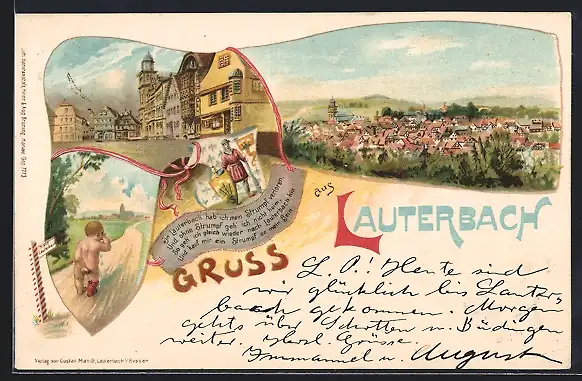 GRUSS
aus
LAUTERBACH
In Lauterbach hab' ich mein Strumpf verloren
Und ohne Strumpf geh' ich nicht heim,
So geh' ich gleich wieder nach Lauterbach hin
Und kauf mir ein Strumpf an mein Bein.
L. A.! Heute sind
wir glücklich bis Lauter-
bach gekommen. Morgen
gehts über Schotten u. Büdingen
weiter. Herzl. Grüsse.
Immanuel u. August
Verlag von Gustav Mandt, Lauterbach i/Hessen